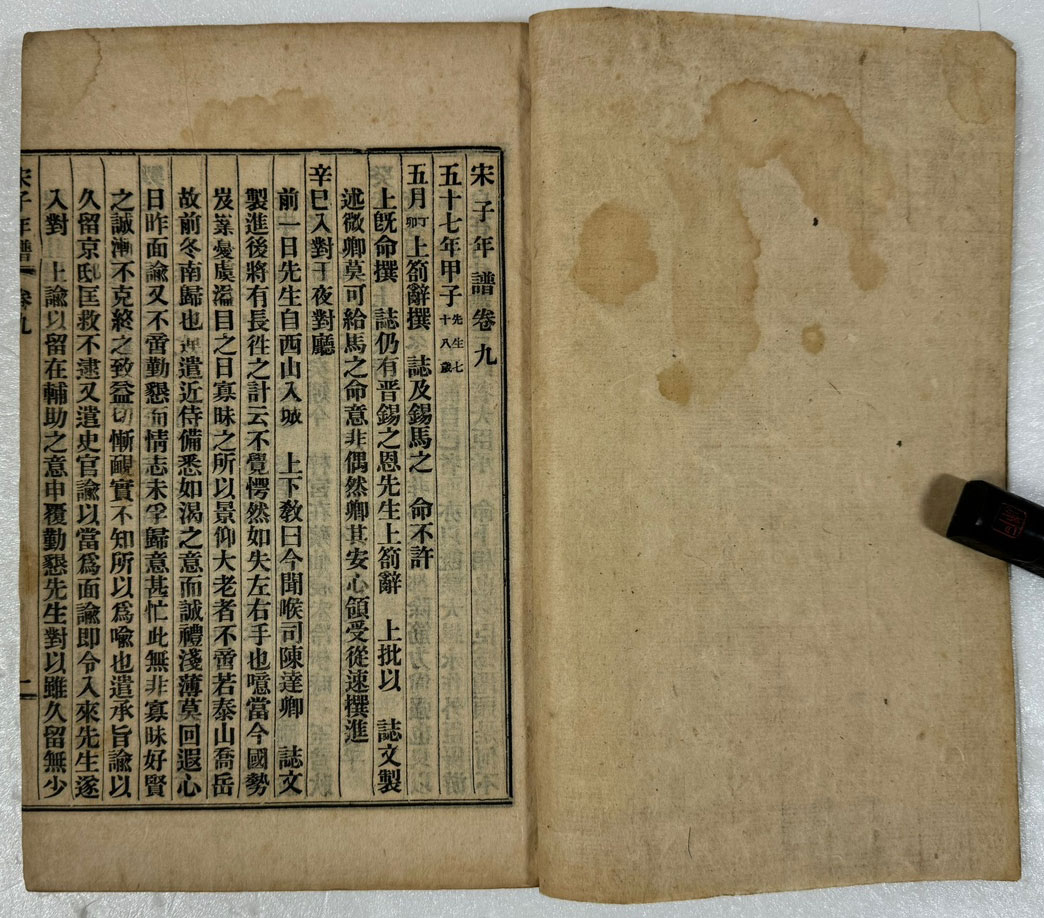 宋子年譜卷九
五十七年甲子先生七十八歲
五月丁卯上箚辭撰 誌及錫馬之 命不許
上旣命撰 誌仍有晋錫之恩先生上箚辭 上批以 誌文製
述微卿莫可給馬之命意非偶然卿其安心領受從速撰進
辛巳入對于夜對廳
前一日先生自西山入城 上下敎曰今聞喉司陳達卿 誌文
製進後將有長徃之計云不覺愕然如失左右手也噫當今國勢
岌嶪憂虞溢目之日寡昧之所以景仰大老者不啻若泰山喬岳
故前冬南歸也 遣近侍備悉如渴之意而誠禮淺薄莫回遐心
日昨面諭又不啻勤懇而情志未孚歸意甚忙此無非寡昧好賢
之誠漸不克終之致益切慚靦實不知所以爲喩也遣承旨諭以
久留京邸匡救不逮又遣史官諭以當爲面諭即令入來先生遂
入對 上諭以留在輔助之意申覆勤懇先生對以雖久留無少
宋子年譜 卷九 一